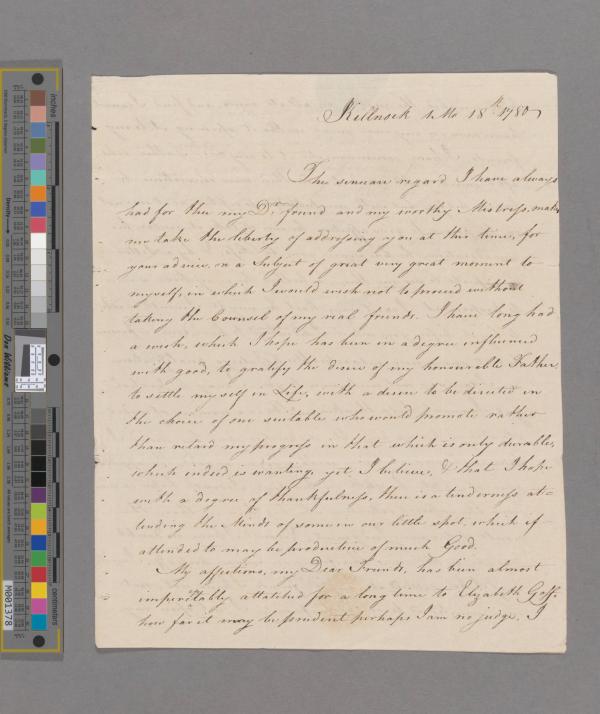 Killnock 1 Mo 18th 1780
The sincere regard I have always
had for thee my Dr. friend and my worthy Mistress, makes
me take the liberty of addressing you at this time, for
your advice, on a Subject of great very great moment to
myself, in which I would wish not to proceed without
taking the Counsel of my real friends. I have long had
a wish, which I hope has been in a degree influenced
with good, to gratify the desire of my honourable Father,
to settle myself in Life, with a desire to be directed in
the choice of one suitable who would promote rather
than retard my progress in that which is only durable,
which indeed is wanting, yet I believe, & that I hope
with a degree of thankfulness, there is a tenderness at=
tending the Minds of some in our little spot, which if
attended to may be productive of much Good.
My affections, my Dear Friends, has been almost
imperceptably attatched for a long time to Elizabeth Goff;
how far it may be prudent perhaps I am no judge, I
inches
centimeters
Density
Don Williams
M001378